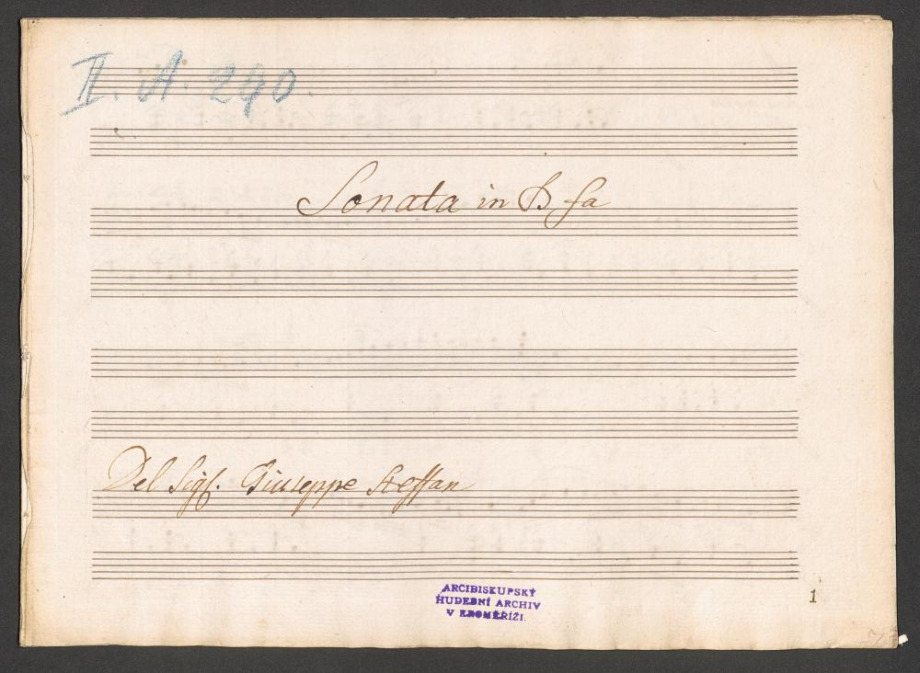 II. A. 290.
Sonata in B fa
Del Sigr. Giuseppe Steffan
ARCIBISKUPSKÝ
HUDEBNÍ ARCHIV
V KROMĚŘÍŽI.
1